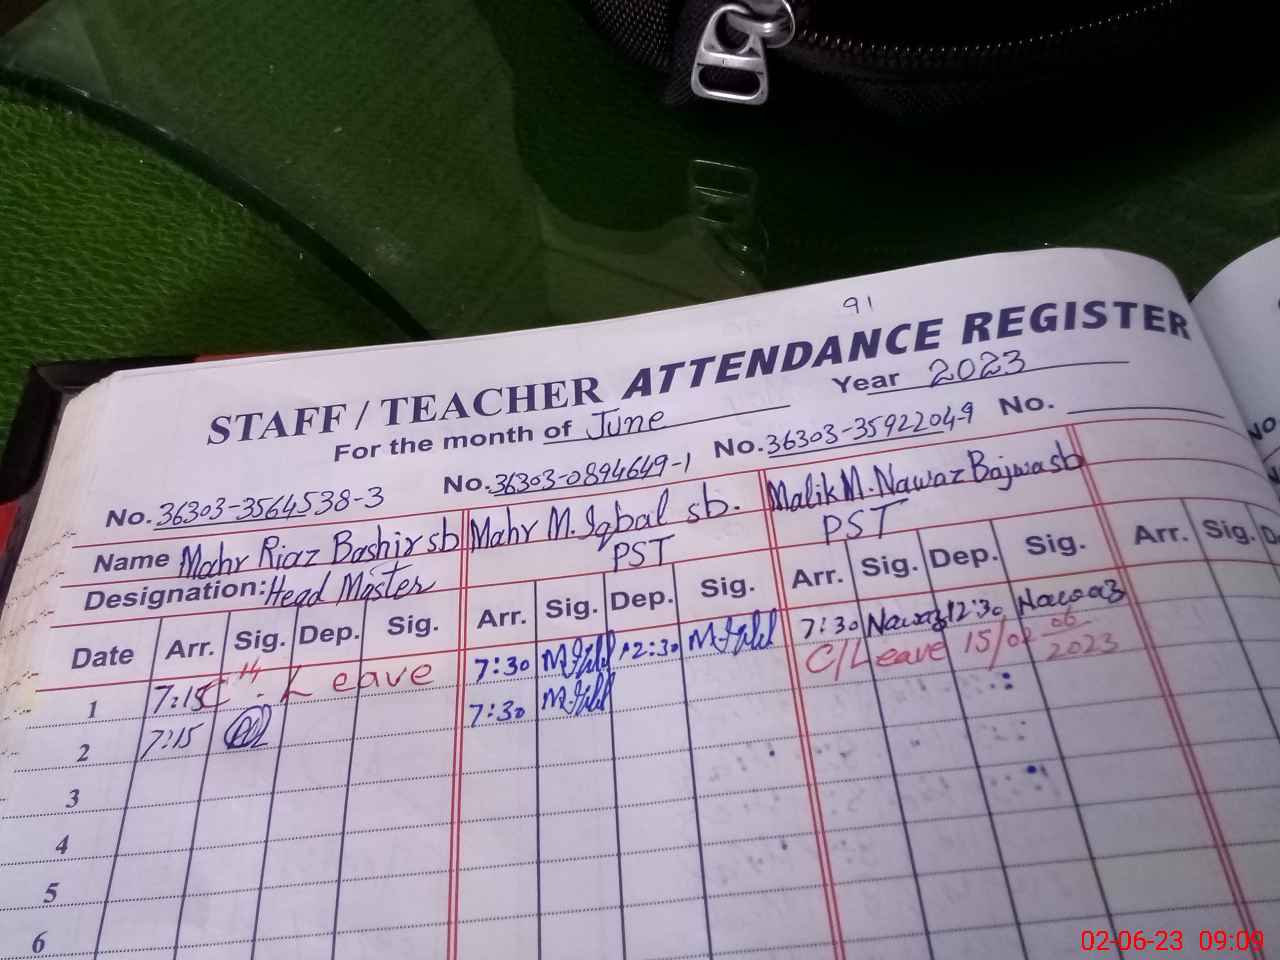 91
STAFF / TEACHER ATTENDANCE REGISTER
For the month of June Year 2023
No. 36303-3564538-3 No. 36303-0894649-1 No. 36303-3592204-9 No.
Name Mahr Riaz Bashir sb Mahr M. Iqbal sb. Malik M. Nawaz Bajwa sb
Designation: Head Master PST PST
Date Arr. Sig. Dep. Sig. Arr. Sig. Dep. Sig. Arr. Sig. Dep. Sig. Arr. Sig.
1 7:15 C. Leave 7:30 M.Iqbal 12:30 M.Iqbal 7:30 Nawaz 12:30 Nawaz
2 7:15 7:30 M.Iqbal C/Leave 15/02 06 2023
3
4
5
6
02-06-23 09:09